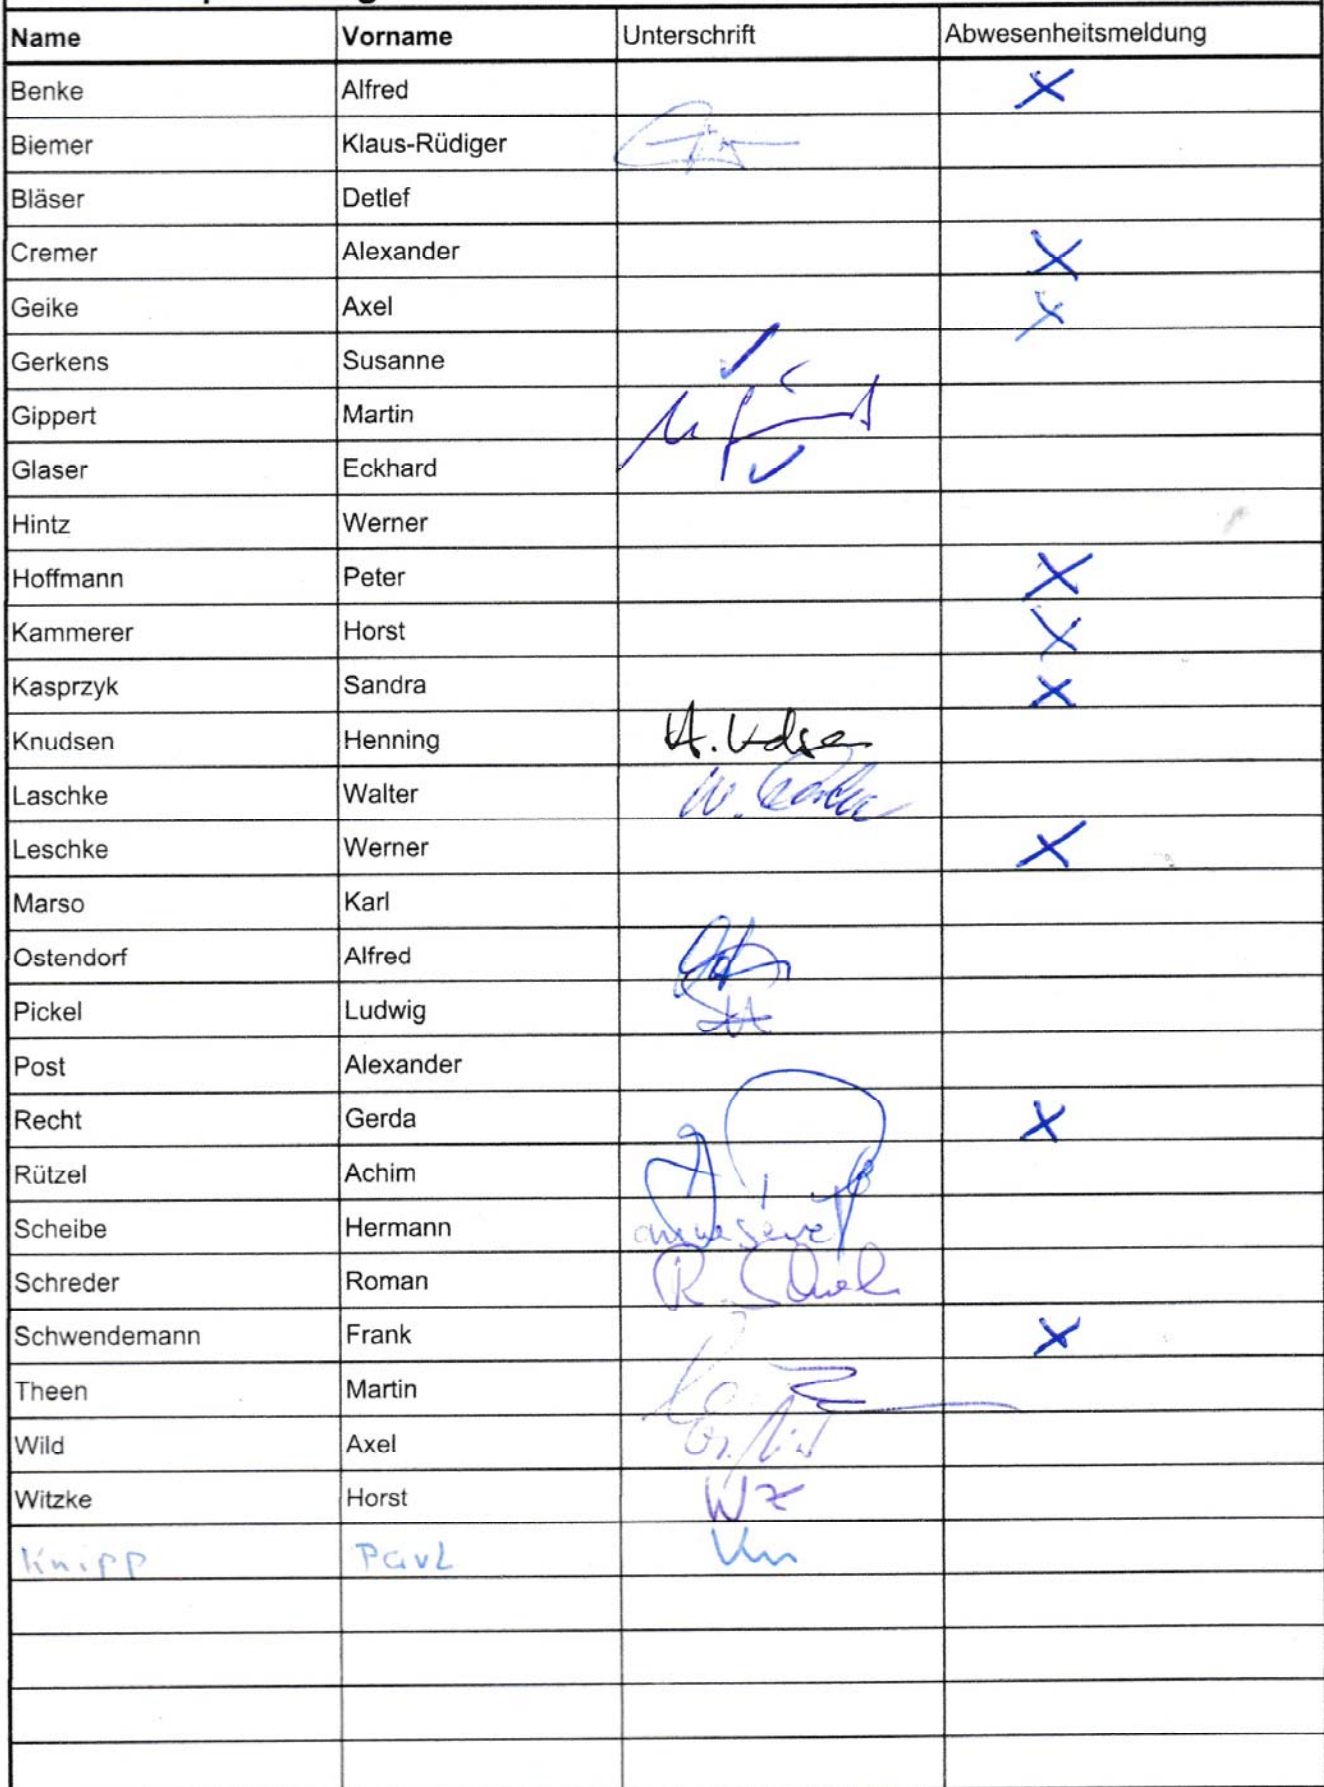 Name Vorname Unterschrift Abwesenheitsmeldung
Benke Alfred X
Biemer Klaus-Rüdiger
Bläser Detlef
Cremer Alexander X
Geike Axel X
Gerkens Susanne ✓
Gippert Martin
Glaser Eckhard ✓
Hintz Werner
Hoffmann Peter X
Kammerer Horst X
Kasprzyk Sandra X
Knudsen Henning
Laschke Walter
Leschke Werner X
Marso Karl
Ostendorf Alfred
Pickel Ludwig
Post Alexander
Recht Gerda X
Rützel Achim
Scheibe Hermann
Schreder Roman
Schwendemann Frank X
Theen Martin
Wild Axel
Witzke Horst WZ
Knipp Paul Kn